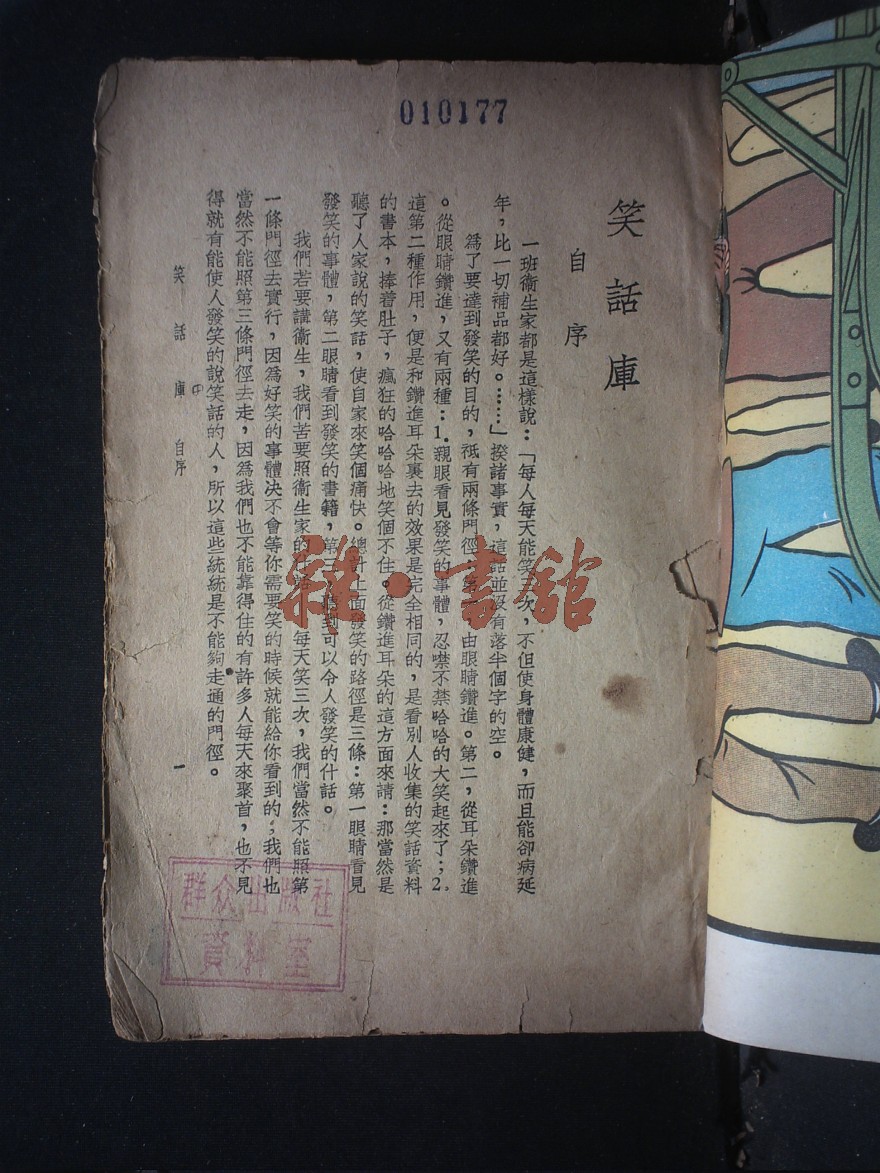 010177
笑話庫
自序
一班衞生家都是這樣說：「每人每天能笑次，不但使身體康健，而且能卻病延
年，比一切補品都好。……」揆諸事實，這話並沒有落半個字的空。
爲了要達到發笑的目的，祇有兩條門徑：第一，由眼睛鑽進。第二，從耳朵鑽進
。從眼睛鑽進，又有兩種：1.親眼看見發笑的事體，忍噤不禁哈哈的大笑起來了；2.
這第二種作用，便是和鑽進耳朵裏去的效果是完全相同的，是看別人收集的笑話資料
的書本，捧着肚子，瘋狂的哈哈哈地笑個不住。從鑽進耳朵的這方面來請：那當然是
聽了人家說的笑話，使自家來笑個痛快。總計上面發笑的路徑是三條：第一眼睛看見
發笑的事體，第二眼睛看到發笑的書籍，第三聽到可以令人發笑的什話。
我們若要講衞生，我們苦要照衞生家的每天笑三次，我們當然不能照第
一條門徑去實行，因爲好笑的事體決不會等你需要笑的時候就能給你看到的；我們也
當然不能照第三條門徑去走，因爲我們也不能靠得住的有許多人每天來聚首，也不見
得就有能使人發笑的說笑話的人，所以這些統統是不能夠走通的門徑。
笑話庫 自序
一
中
雜·書館
群众出版社
資料室